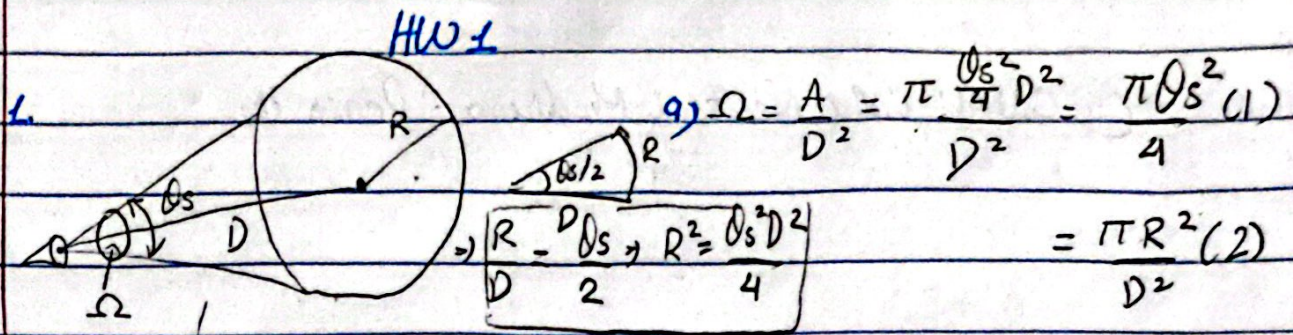 HW 1
1.
θs
R
D
Ω
θs/2
R
D
a) Ω = A/D² = π (θs²/4) D² / D² = πθs²/4 (1)
⇒ R/D = θs/2, R² = θs²D²/4
= πR²/D² (2)